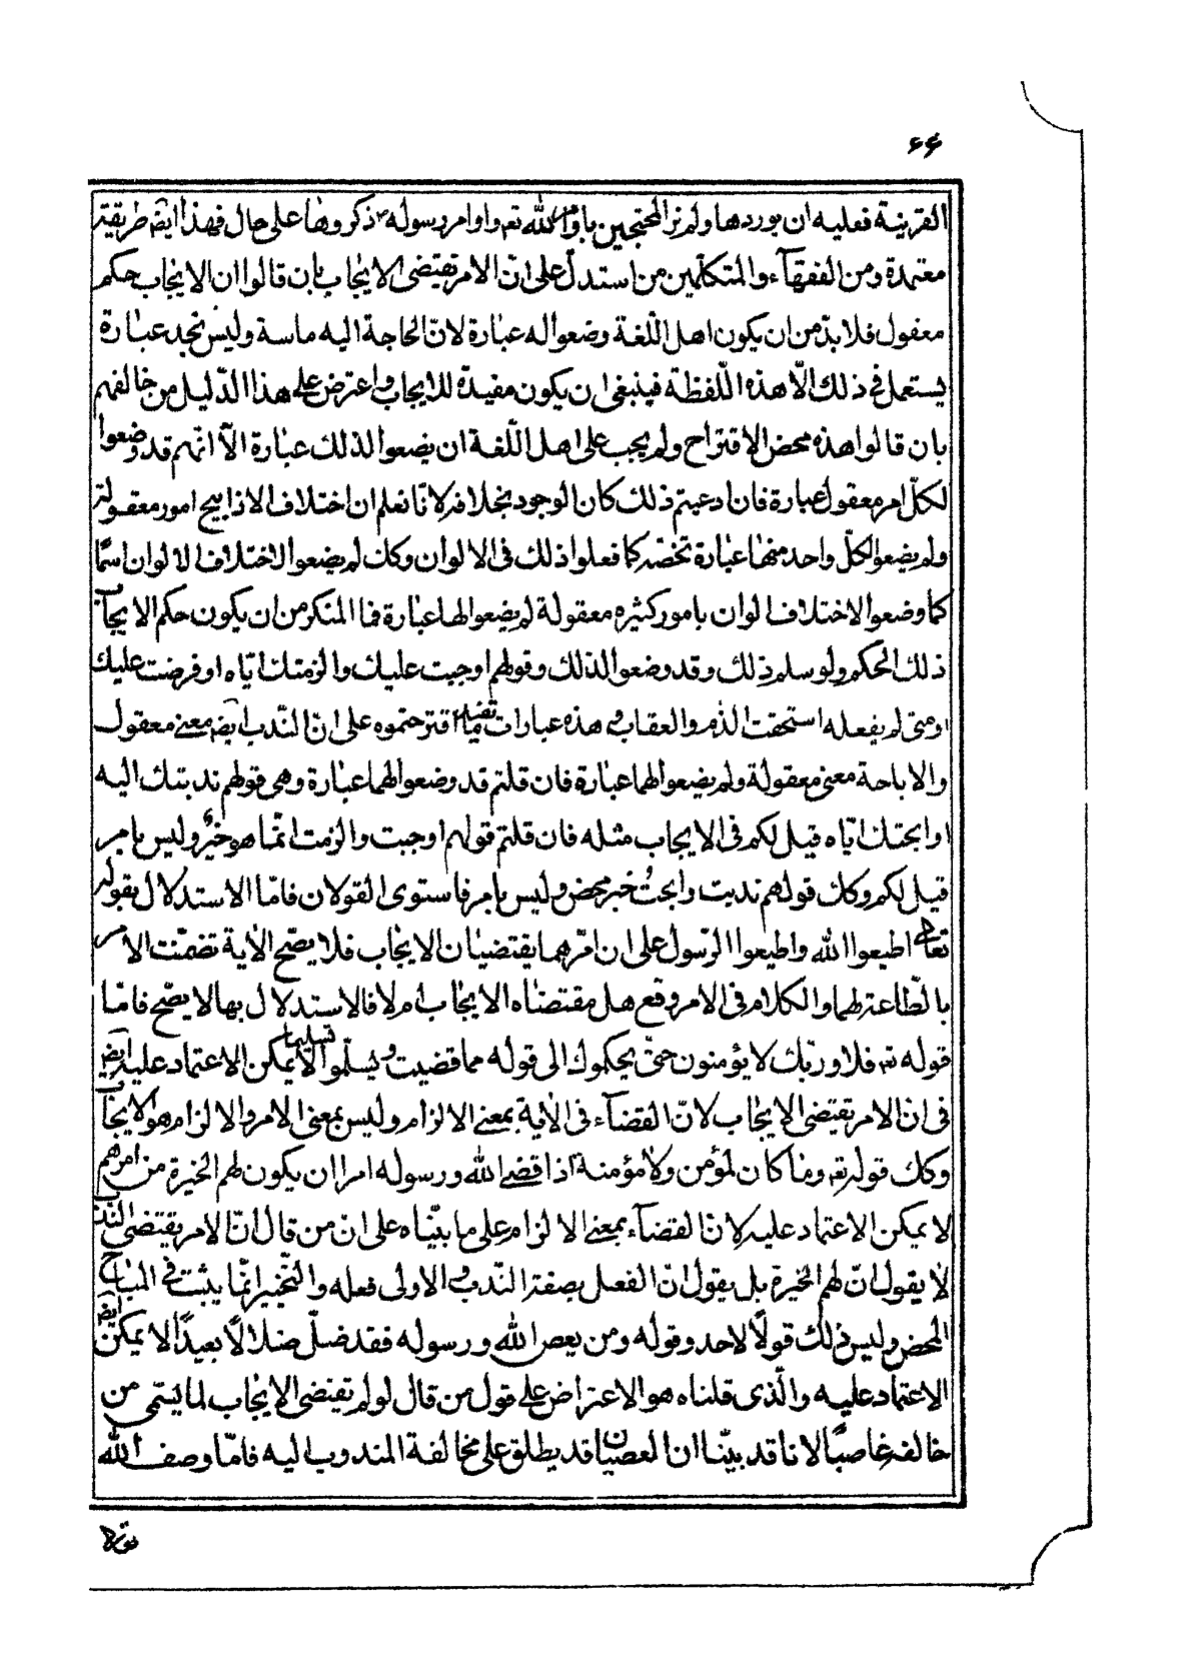 ۶۶
القرينة فعليه ان يوردها ولم نر المحتجين باوامر الله تعه واوامر رسوله ذكروها على حال فهذا ايضا طريقة
معتمدة ومن الفقهآء والمتكلّمين من استدلّ على انّ الامر يقتضى الايجاب بان قالوا ان الايجاب حكم
معقول فلا بدّ من ان يكون اهل اللّغة وضعوا له عبارة لانّ الحاجة اليه ماسة وليس نجد عبارة
يستعمل فى ذلك الّا هذه اللّفظة فينبغى ان يكون مفيدة للايجاب واعترض على هذا الدّليل من خالفهم
بان قالوا هذه محض الاقتراح ولم يجب على اهل اللّغة ان يضعوا لذلك عبارة الّا انّهم قد وضعوا
لكلّ امر معقول عبارة فان ادعيتم ذلك كان الوجود بخلافه لانّا نعلم ان اختلاف الاذابيح امور معقولة
ولم يضعوا لكلّ واحد منها عبارة تخصّه كما فعلوا ذلك فى الالوان وكك لم يضعوا لاختلاف الالوان اسمًا
كما وضعوا لاختلاف الوان بامور كثيره معقولة لم يضعوا لها عبارة فما المنكر من ان يكون حكم الايجاب
ذلك الحكم ولو سلم ذلك وقد وضعوا لذلك وقولهم اوجبت عليك والزمتك ايّاه او فرضت عليك
ومتى لم يفعله استحقت الذم والعقاب وهذه عبارات فيما اقترحتموه على انّ النّدب ايضا معنى معقول
والاباحة معنى معقولة ولم يضعوا لهما عبارة فان قلتم قد وضعوا لهما عبارة وهى قولهم ندبتك اليه
او ابحتك ايّاه قيل لكم فى الايجاب مثله فان قلتم قولهم اوجبت والزمت انّما هو خبرٌ وليس بامر
قيل لكم وكك قولهم ندبت وابحتُ خبر محض وليس بامر فاستوى القولان فامّا الاستدلال بقوله
تعالى اطيعوا الله واطيعوا الرّسول على ان امرهما يقتضيان الايجاب فلا يصّح الاية تضمّنت الامر
بالطّاعة لهما والكلام فى الامر وقع هل مقتضاه الايجاب ام لا فالاستدلال بها لا يصّح فامّا
قوله تع فلا وربّك لا يؤمنون حتّى يحكموك الى قوله مما قضيت ويسلّموا تسليما لا يمكن الاعتماد عليه ايضا
فى انّ الامر يقتضى الايجاب لانّ القضآء فى الاية بمعنى الالزام وليس بمعنى الامر والالزام هو الايجاب
وكك قوله تع وما كان لمؤمن ولا مؤمنة اذا قضى الله ورسوله امرا ان يكون لهم الخيرة من امرهم
لا يمكن الاعتماد عليه لانّ القضآء بمعنى الالزام على ما بيّناه على انّ من قال انّ الامر يقتضى النّدب
لا يقول انّ لهم الخيرة بل يقول انّ الفعل بصفة النّدب والاولى فعله والتّخيير انّما يثبت فى المباح
المحض وليس ذلك قولًا لاحد وقوله ومن يعص الله ورسوله فقد ضلّ ضلالًا بعيدًا لا يمكن ايضا
الاعتماد عليه والّذى قلناه هو الاعتراض على قول من قال لو لم تقتضى الايجاب لما يسمّى من
خالفه عاصيًا لانا قد بيّنا ان العصيان قد يطلق على مخالفة المندوب اليه فامّا وصف الله